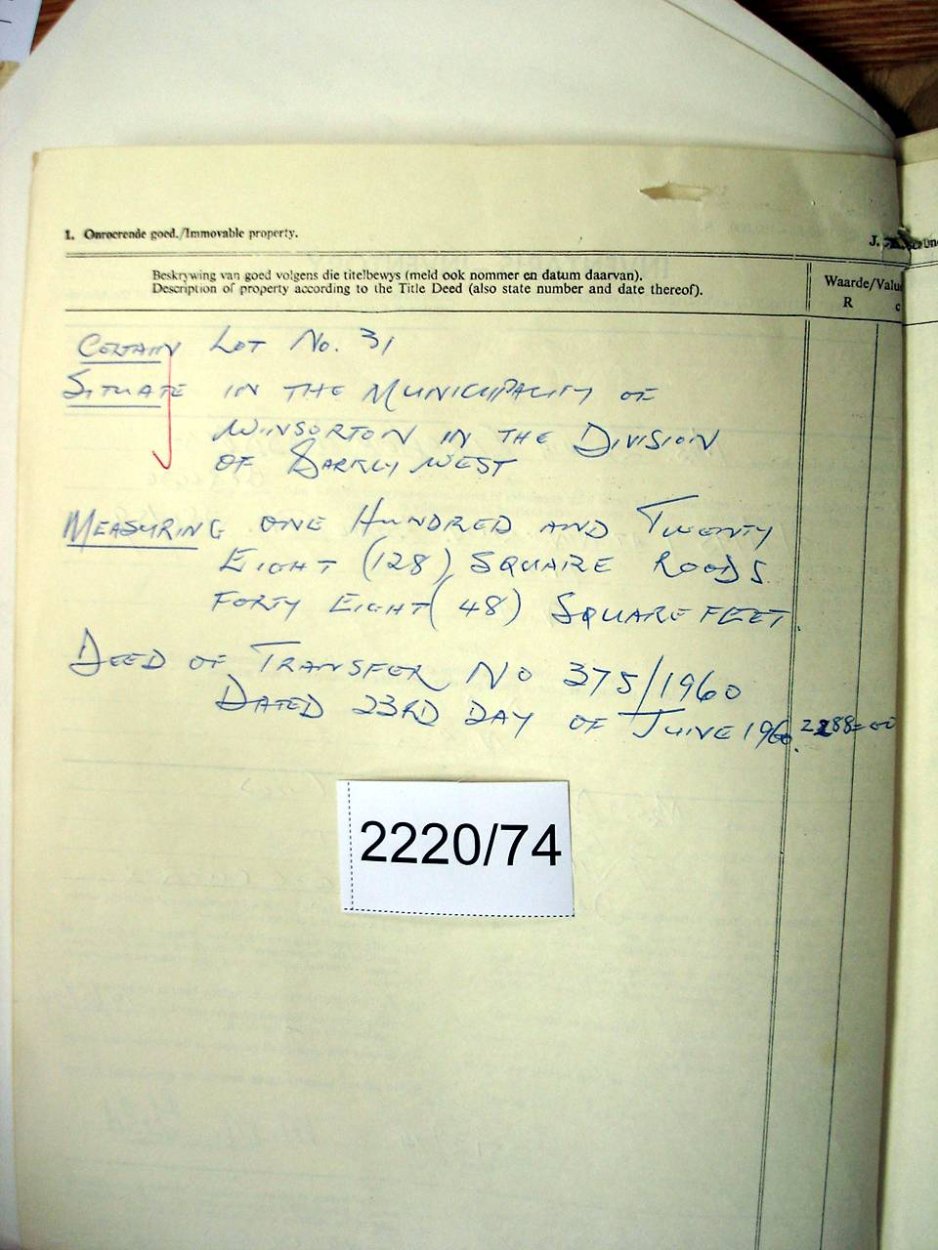 1. Onroerende goed./Immovable property.
J.
Beskrywing van goed volgens die titelbewys (meld ook nommer en datum daarvan).
Description of property according to the Title Deed (also state number and date thereof).
Waarde/Valu
R c
CERTAIN LOT No. 31
SITUATE IN THE MUNICIPALITY OF
WINSORTON IN THE DIVISION
OF BARKLY WEST
MEASURING ONE HUNDRED AND TWENTY
EIGHT (128) SQUARE ROODS
FORTY EIGHT (48) SQUARE FEET.
DEED OF TRANSFER No 375/1960
DATED 23RD DAY OF JUNE 1960.
2220/74